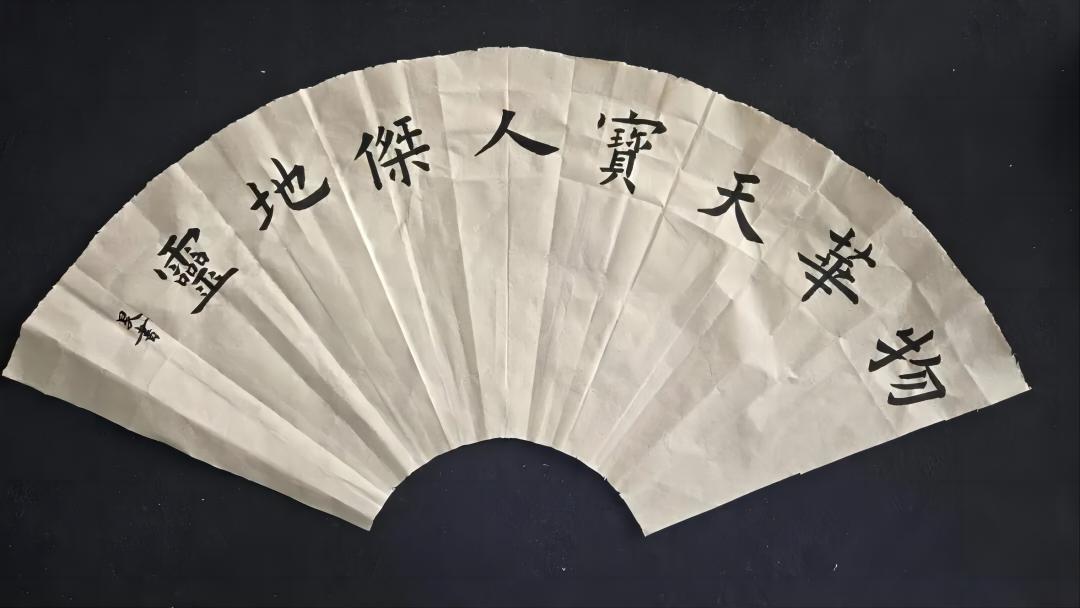 物華天寶人傑地靈
昊書